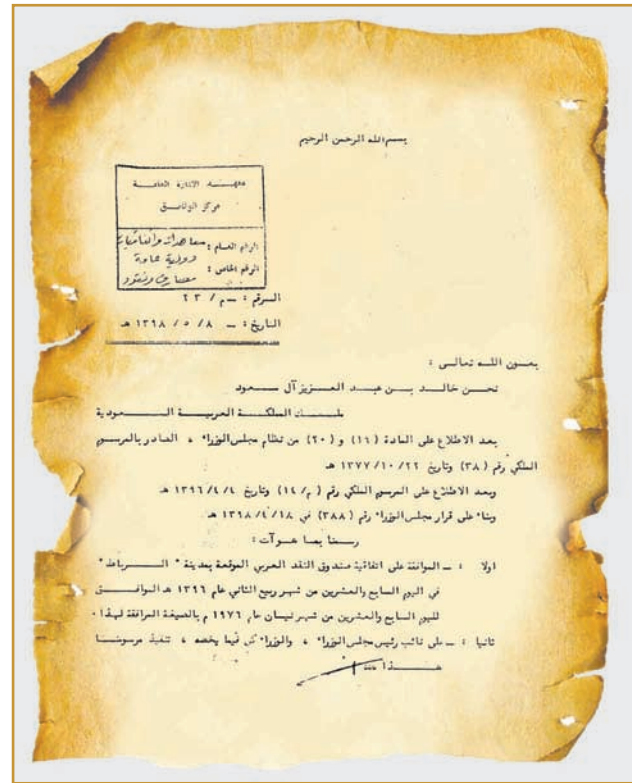 بسم الله الرحمن الرحيم
معهد الادارة العامة
مركز الوثائق
الرقم العام : معاهدات واتفاقيات
دولية عامة
الرقم الخاص : مصارف ونقود
الرقم : ــ م / ٢٣
التاريخ : ــ ٨ / ٥ / ١٣٩٨ هـ
بعون الله تعالى :
نحن خالد بن عبد العزيز آل سعود
ملك المملكة العربية السعودية
بعد الاطلاع على المادة (١٦) و (٢٠) من نظام مجلس الوزراء ، الصادر بالمرسوم
الملكي رقم (٣٨) وتاريخ ٢٢/١٠/١٣٧٧ هـ
وبعد الاطلاع على المرسوم الملكي رقم (م/١٤) وتاريخ ٤/٤/١٣٩٦ هـ
وبناء على قرار مجلس الوزراء رقم (٣٨٨) في ١٨/٤/١٣٩٨ هـ
رسمنا بما هو آت :
اولا : ــ الموافقة على اتفاقية صندوق النقد العربي الموقعة بمدينة " الرباط "
في اليوم السابع والعشرين من شهر ربيع الثاني عام ١٣٩٦ هـ الموافق
لليوم السابع والعشرين من شهر نيسان عام ١٩٧٦ م بالصيغة المرافقة لهذا .
ثانيا : ــ على نائب رئيس مجلس الوزراء ، والوزراء كل فيما يخصه ، تنفيذ مرسومنا
هذا ،،،